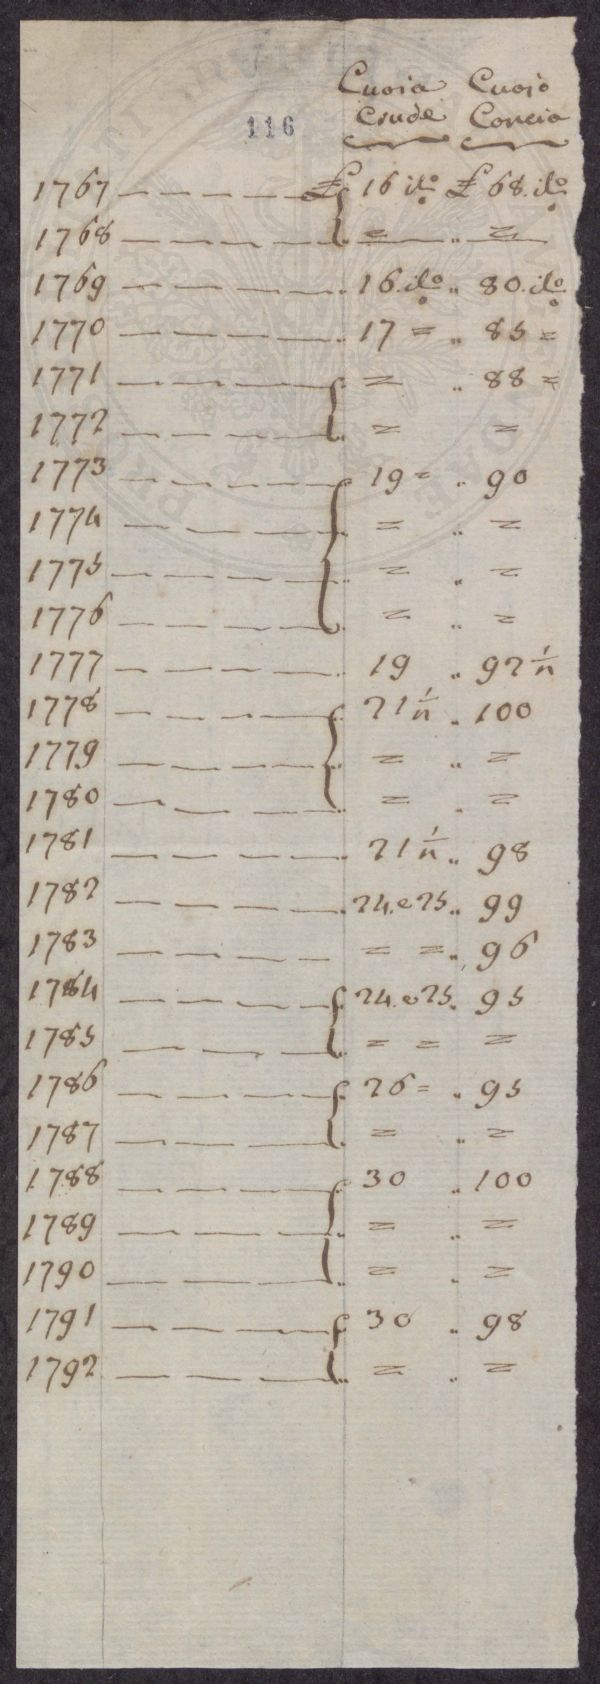 Cuoia Cuojo
Crude Concio
116
1767 £ 16 il o £ 68. il o
1768 = „ =
1769 16. il o „ 80. il o
1770 17 = „ 85 =
1771 = „ 88 =
1772 = =
1773 19 = „ 90
1774 = „ =
1775 = „ =
1776 = „ =
1777 19 „ 92 1/2
1778 21 1/2 „ 100
1779 = „ =
1780 = „ =
1781 21 1/2 „ 98
1782 24. e 25 „ 99
1783 = = „ 96
1784 24. e 25 „ 95
1785 = = =
1786 26 = „ 95
1787 = „ =
1788 30 „ 100
1789 = „ =
1790 = „ =
1791 30 „ 98
1792 = „ =